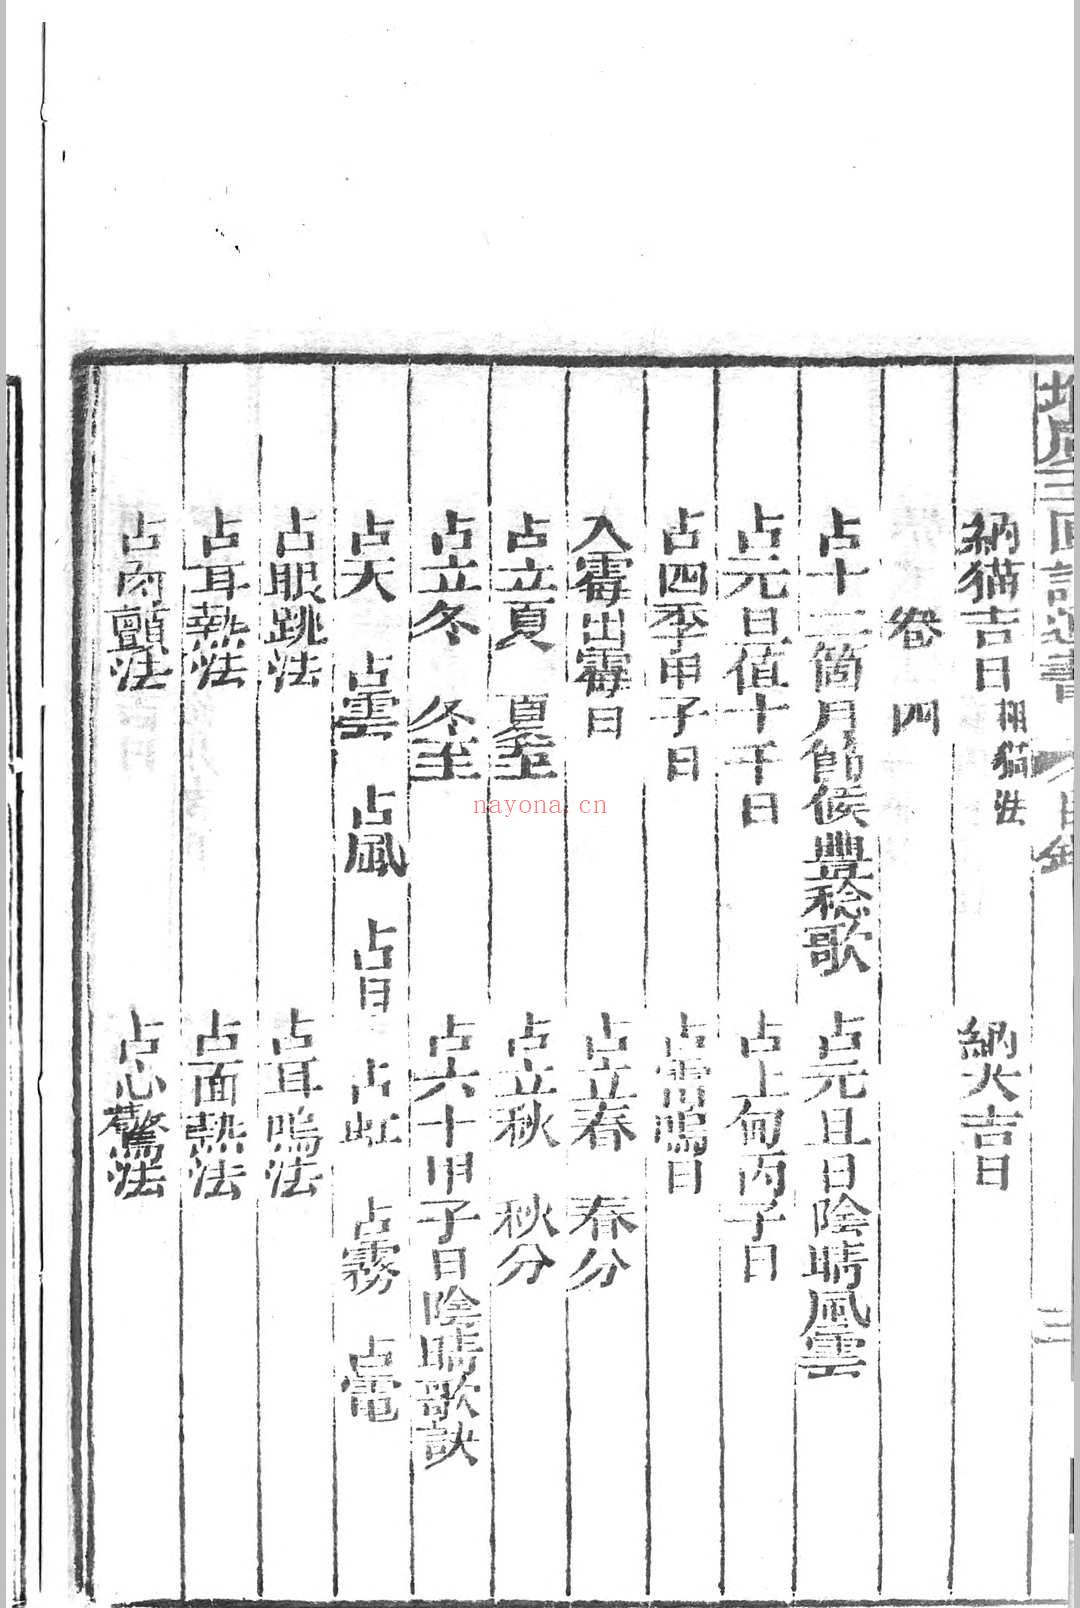 納猫吉日 相猫法 納犬吉日
卷四
占十二箇月節候豐稔歌 占元旦日陰晴風雲
占元旦值十干日 占上旬丙子日
占四季甲子日 占雷鳴日
入霉出霉日 占立春 春分
占立夏 夏至 占立秋 秋分
占立冬 冬至 占六十甲子日陰晴歌訣
占天 占雲 占風 占日 占虹 占霧 占電
占眼跳法 占耳鳴法
占耳熱法 占面熱法
占肉顫法 占心驚法
三
nayona.cn